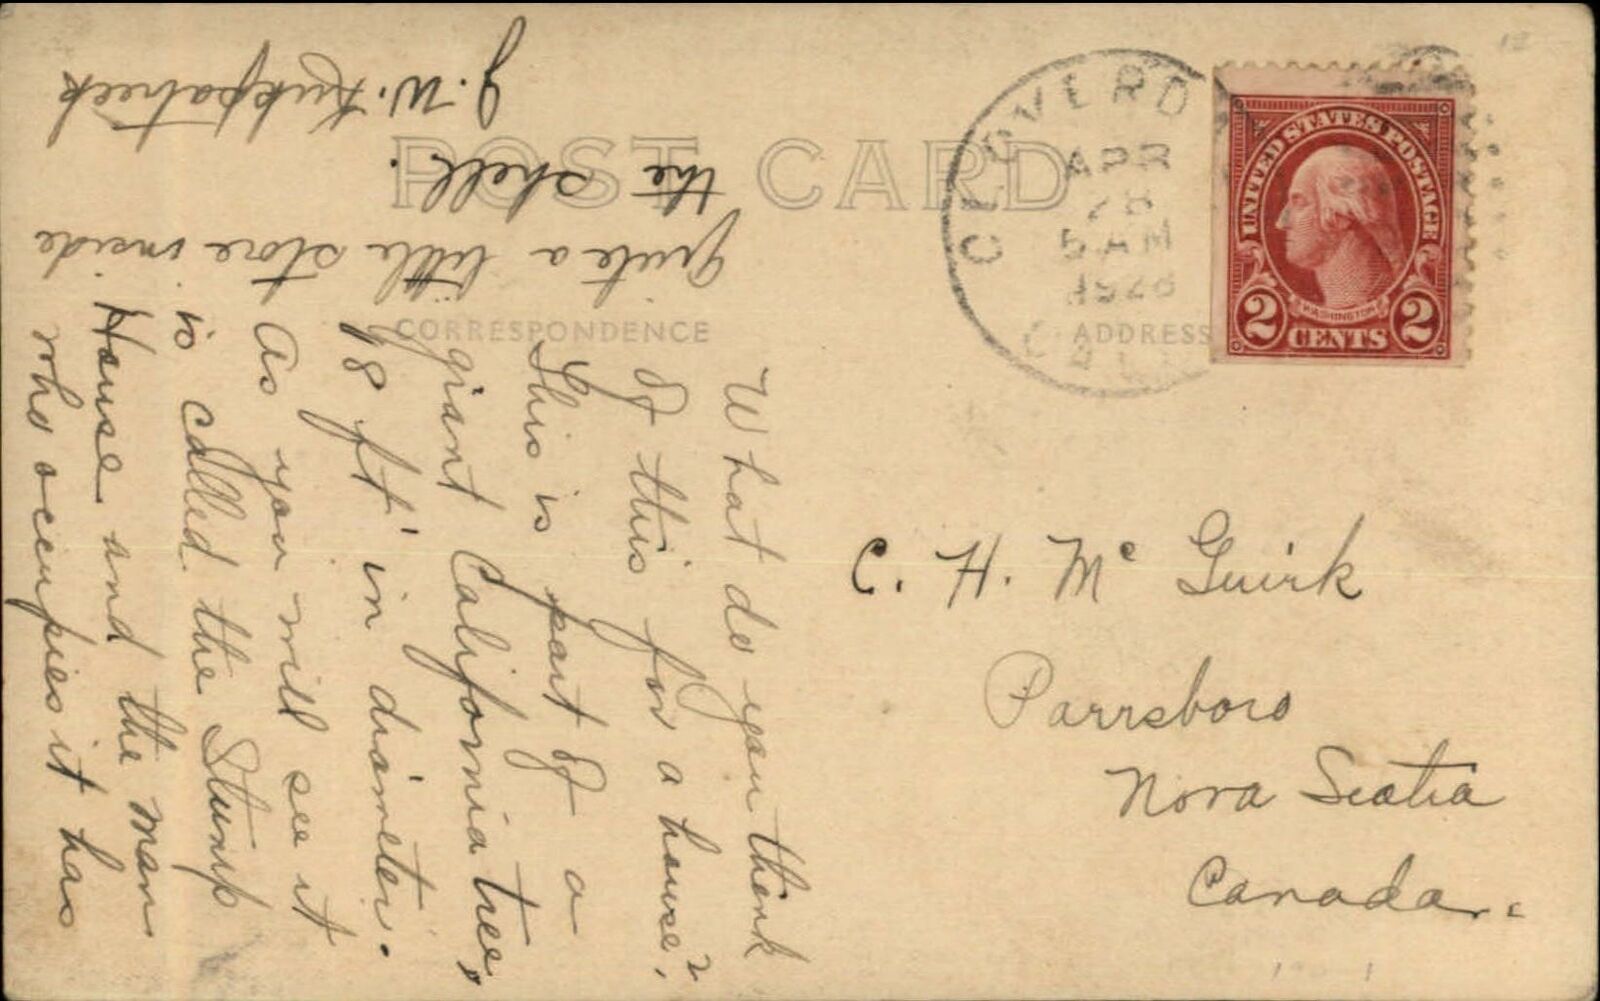 POST CARD
CORRESPONDENCE
ADDRESS
CLOVERD
APR
28
5 AM
1926
CALIF
UNITED STATES POSTAGE
WASHINGTON
2 CENTS 2
What do you think
of this for a house?
This is part of a
giant California tree,
18 ft in diameter.
As you will see it
is called the Stump
House and the man
who occupies it has
quite a little store inside
the shell.
J. W. Kirkpatrick
C. H. Mc Guirk
Parrsboro
Nova Scotia
Canada.